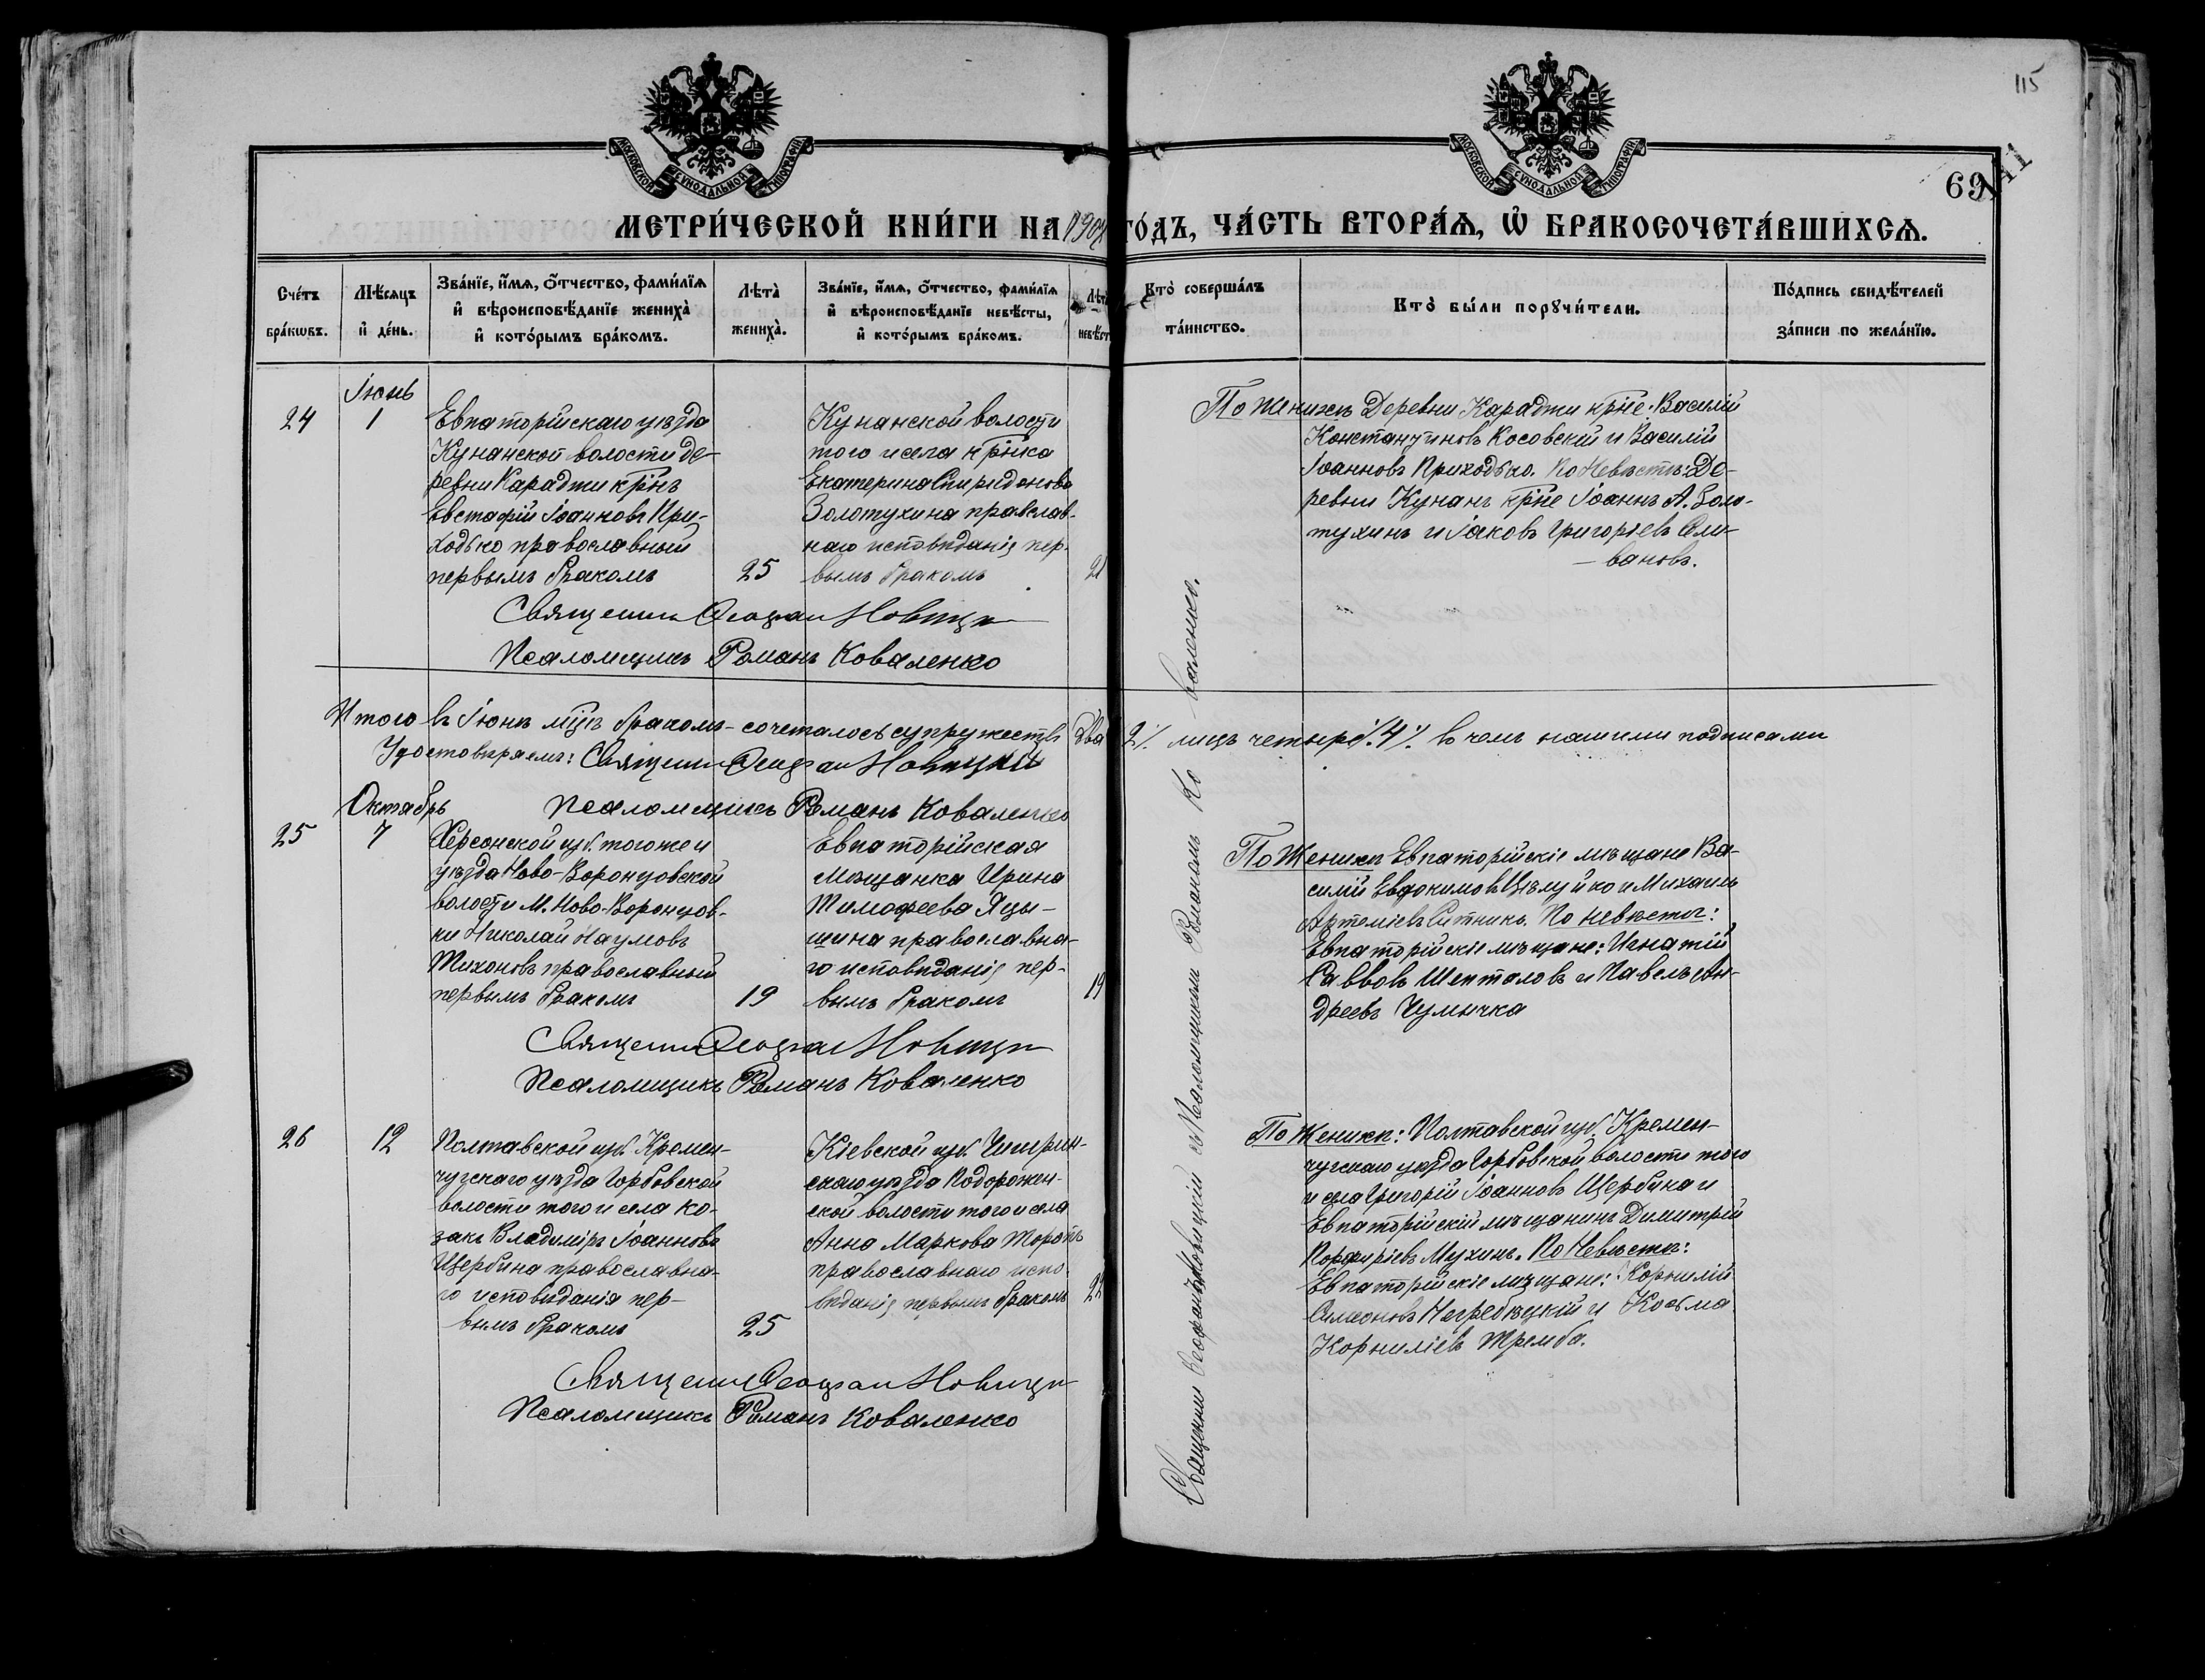 115
69
МОСКОВСКОЙ СѴНОДАЛЬНОЙ ТИПОГРАФІИ
МОСКОВСКОЙ СѴНОДАЛЬНОЙ ТИПОГРАФІИ
МЕТРИ́ЧЕСКОЙ КНИ́ГИ НА 190 ГО́ДЪ, ЧА́СТЬ ВТОРА́Ѧ, Ѡ҆ БРАКОСОЧЕТА́ВШИХСѦ.
Сче́тъ бра́кѡвъ.
Мѣ́сѧцъ и҆ де́нь.
Зва́нїе, и҆́мѧ, ѻ҆́тчество, фами́лїѧ и҆ вѣроисповѣ́данїе жениха̀ и҆ кото́рымъ бра́комъ.
Лѣта̀ жениха̀.
Зва́нїе, и҆́мѧ, ѻ҆́тчество, фами́лїѧ и҆ вѣроисповѣ́данїе невѣ́сты, и҆ кото́рымъ бра́комъ.
Лѣта̀ невѣ́ст
Кто̀ соверша́лъ та́инство.
Кто̀ бы́ли порꙋчи́тели.
По́дпись свидѣ́телей за́писи по жела́нїю.
Іюнь
24
1
Евпаторійскаго уѣзда
Кунанской волости де-
ревни Караджи кр҃нъ
Евстафій Іоанновъ При-
ходько православный
первымъ бракомъ
25
Кунанской волости
того и села кр҃нка
Екатерина Спиридонова
Золотухина православ-
наго исповѣданія пер-
вымъ бракомъ
21
По Женихѣ Деревни Караджи кр҃не: Василій
Константиновъ Косовскій и Василій
Іоанновъ Приходько. По Невѣстѣ: Де-
ревни Кунанъ кр҃не Іоаннъ А. Золо-
тухинъ и Іаковъ Григоріевъ Сели-
вановъ.
Священникъ Ѳеофанъ Новицкій
Псаломщикъ Романъ Коваленко
Итого въ Іюнѣ мц҃ѣ бракомъ-сочеталось супружествъ два 2 ⁒ лицъ четыре ⁒ 4 ⁒ въ чемъ нашими подписями
Удостовѣряемъ: Священникъ Ѳеофанъ Новицкій
Псаломщикъ Романъ Коваленко
Октябрь
25
7
Херсонской губ. того же и
уѣзда Ново-Воронцовской
волости М. Ново-Воронцов-
ки Николай Наумовъ
Тихоновъ православный
первымъ бракомъ
19
Евпаторійская
мѣщанка Ирина
Тимофеева Яцы-
шина православна-
го исповѣданія пер-
вымъ бракомъ
19
По Женихѣ Евпаторійскіе мѣщане Ва-
силій Евдокимовъ Цѣлуйко и Михаилъ
Артеміевъ Ситникъ. По невѣстѣ:
Евпаторійскіе мѣщане: Игнатій
Саввовъ Шепталовъ и Павелъ Ан-
дреевъ Чумычка
Священникъ Ѳеофанъ Новицкій
Псаломщикъ Романъ Коваленко
26
12
Полтавской губ. Кремен-
чугскаго уѣзда Горбовской
волости того и села ко-
закъ Владиміръ Іоанновъ
Щербина православна-
го исповѣданія пер-
вымъ бракомъ
25
Кіевской губ. Чигрин-
скаго уѣзда Подорожен-
ской волости того и села
Анна Маркова
православнаго испо-
вѣданія первымъ бракомъ
22
По Женихѣ: Полтавской губ. Кремен-
чугскаго уѣзда Горбовской волости того
и села Григорій Іоанновъ Щербина и
Евпаторійскій мѣщанинъ Димитрій
Порфиріевъ Мухинъ. По Невѣстѣ:
Евпаторійскіе мѣщане: Корнилій
Симеоновъ Негребецкій и Косьма
Корниліевъ Тремба.
Священникъ Ѳеофанъ Новицкій
Псаломщикъ Романъ Коваленко
Священник Ѳеофанъ Новицкій съ Псаломщикомъ Романомъ Коваленко.